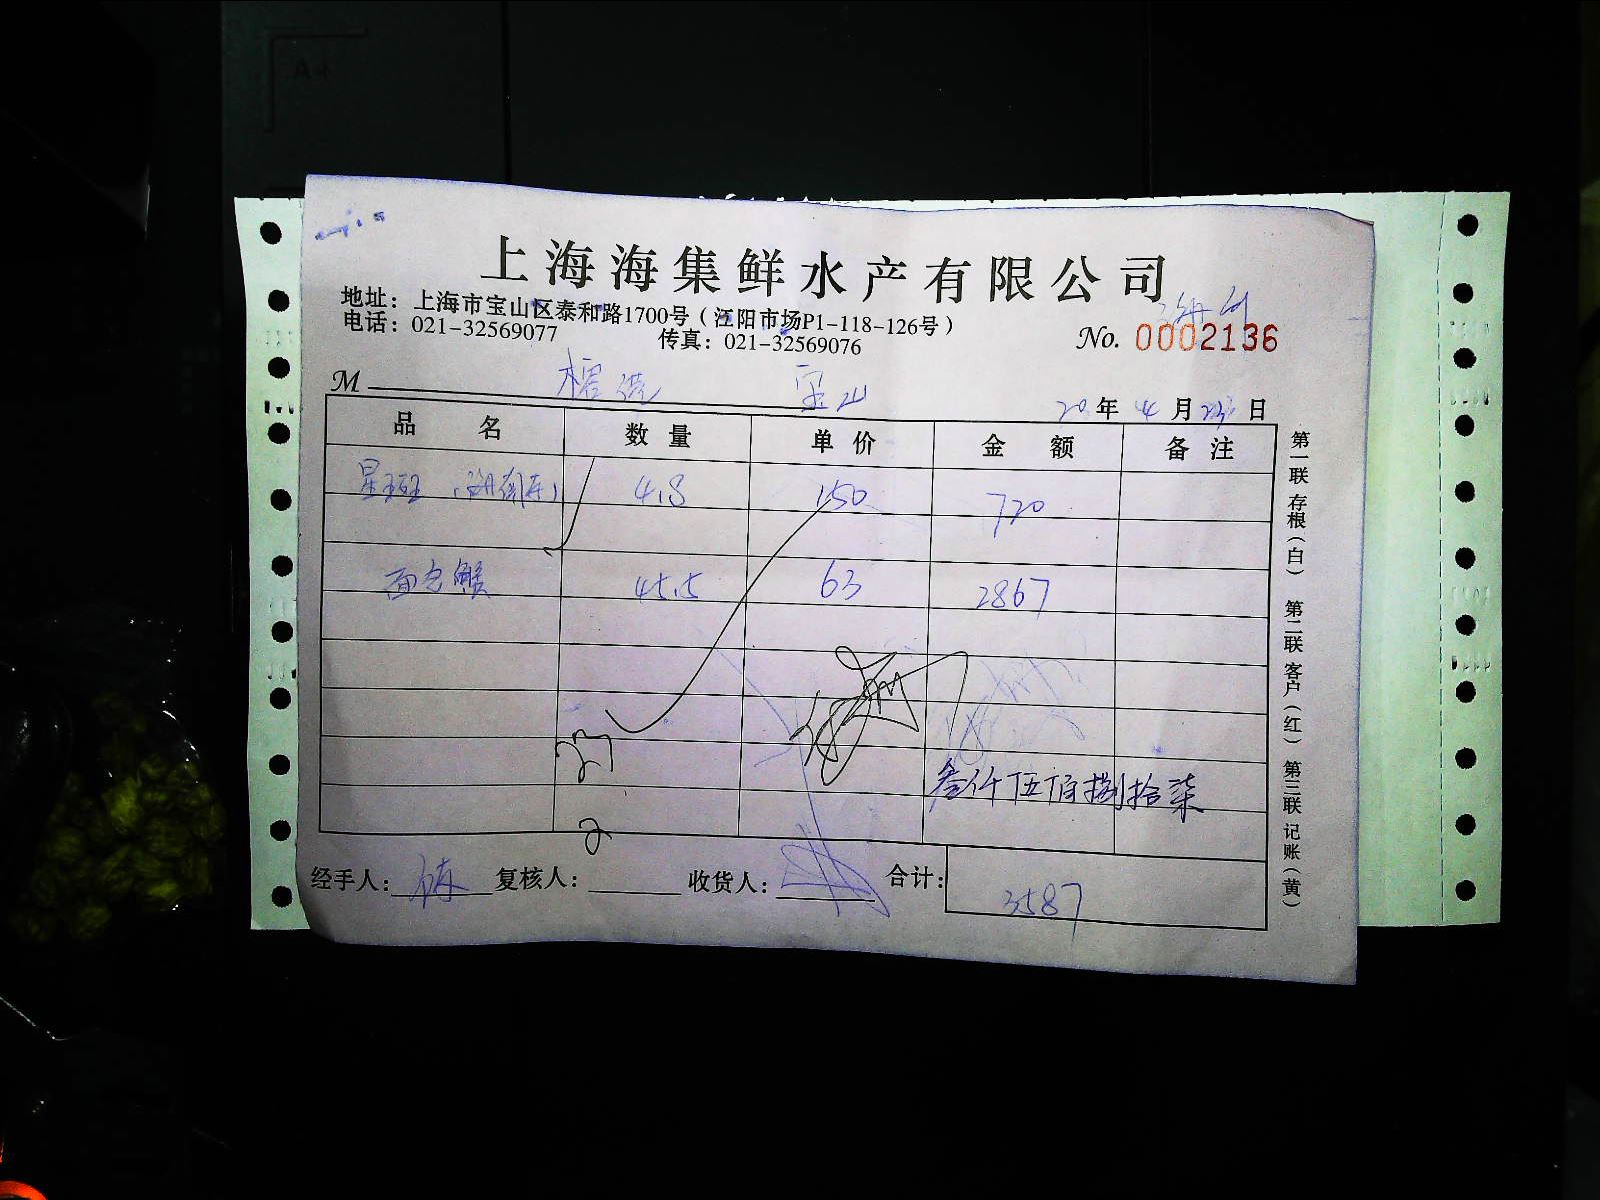 上海海集鲜水产有限公司
地址：上海市宝山区泰和路1700号（江阳市场P1-118-126号）
电话：021-32569077 传真：021-32569076
No. 0002136
M 榕港 宝山
20年 4月 23日
品名 数量 单价 金额 备注
星斑 4.8 150 720
面包蟹 45.5 63 2867
叁仟伍佰捌拾柒
经手人： 复核人： 收货人： 合计： 3587
第一联 存根（白） 第二联 客户（红） 第三联 记账（黄）